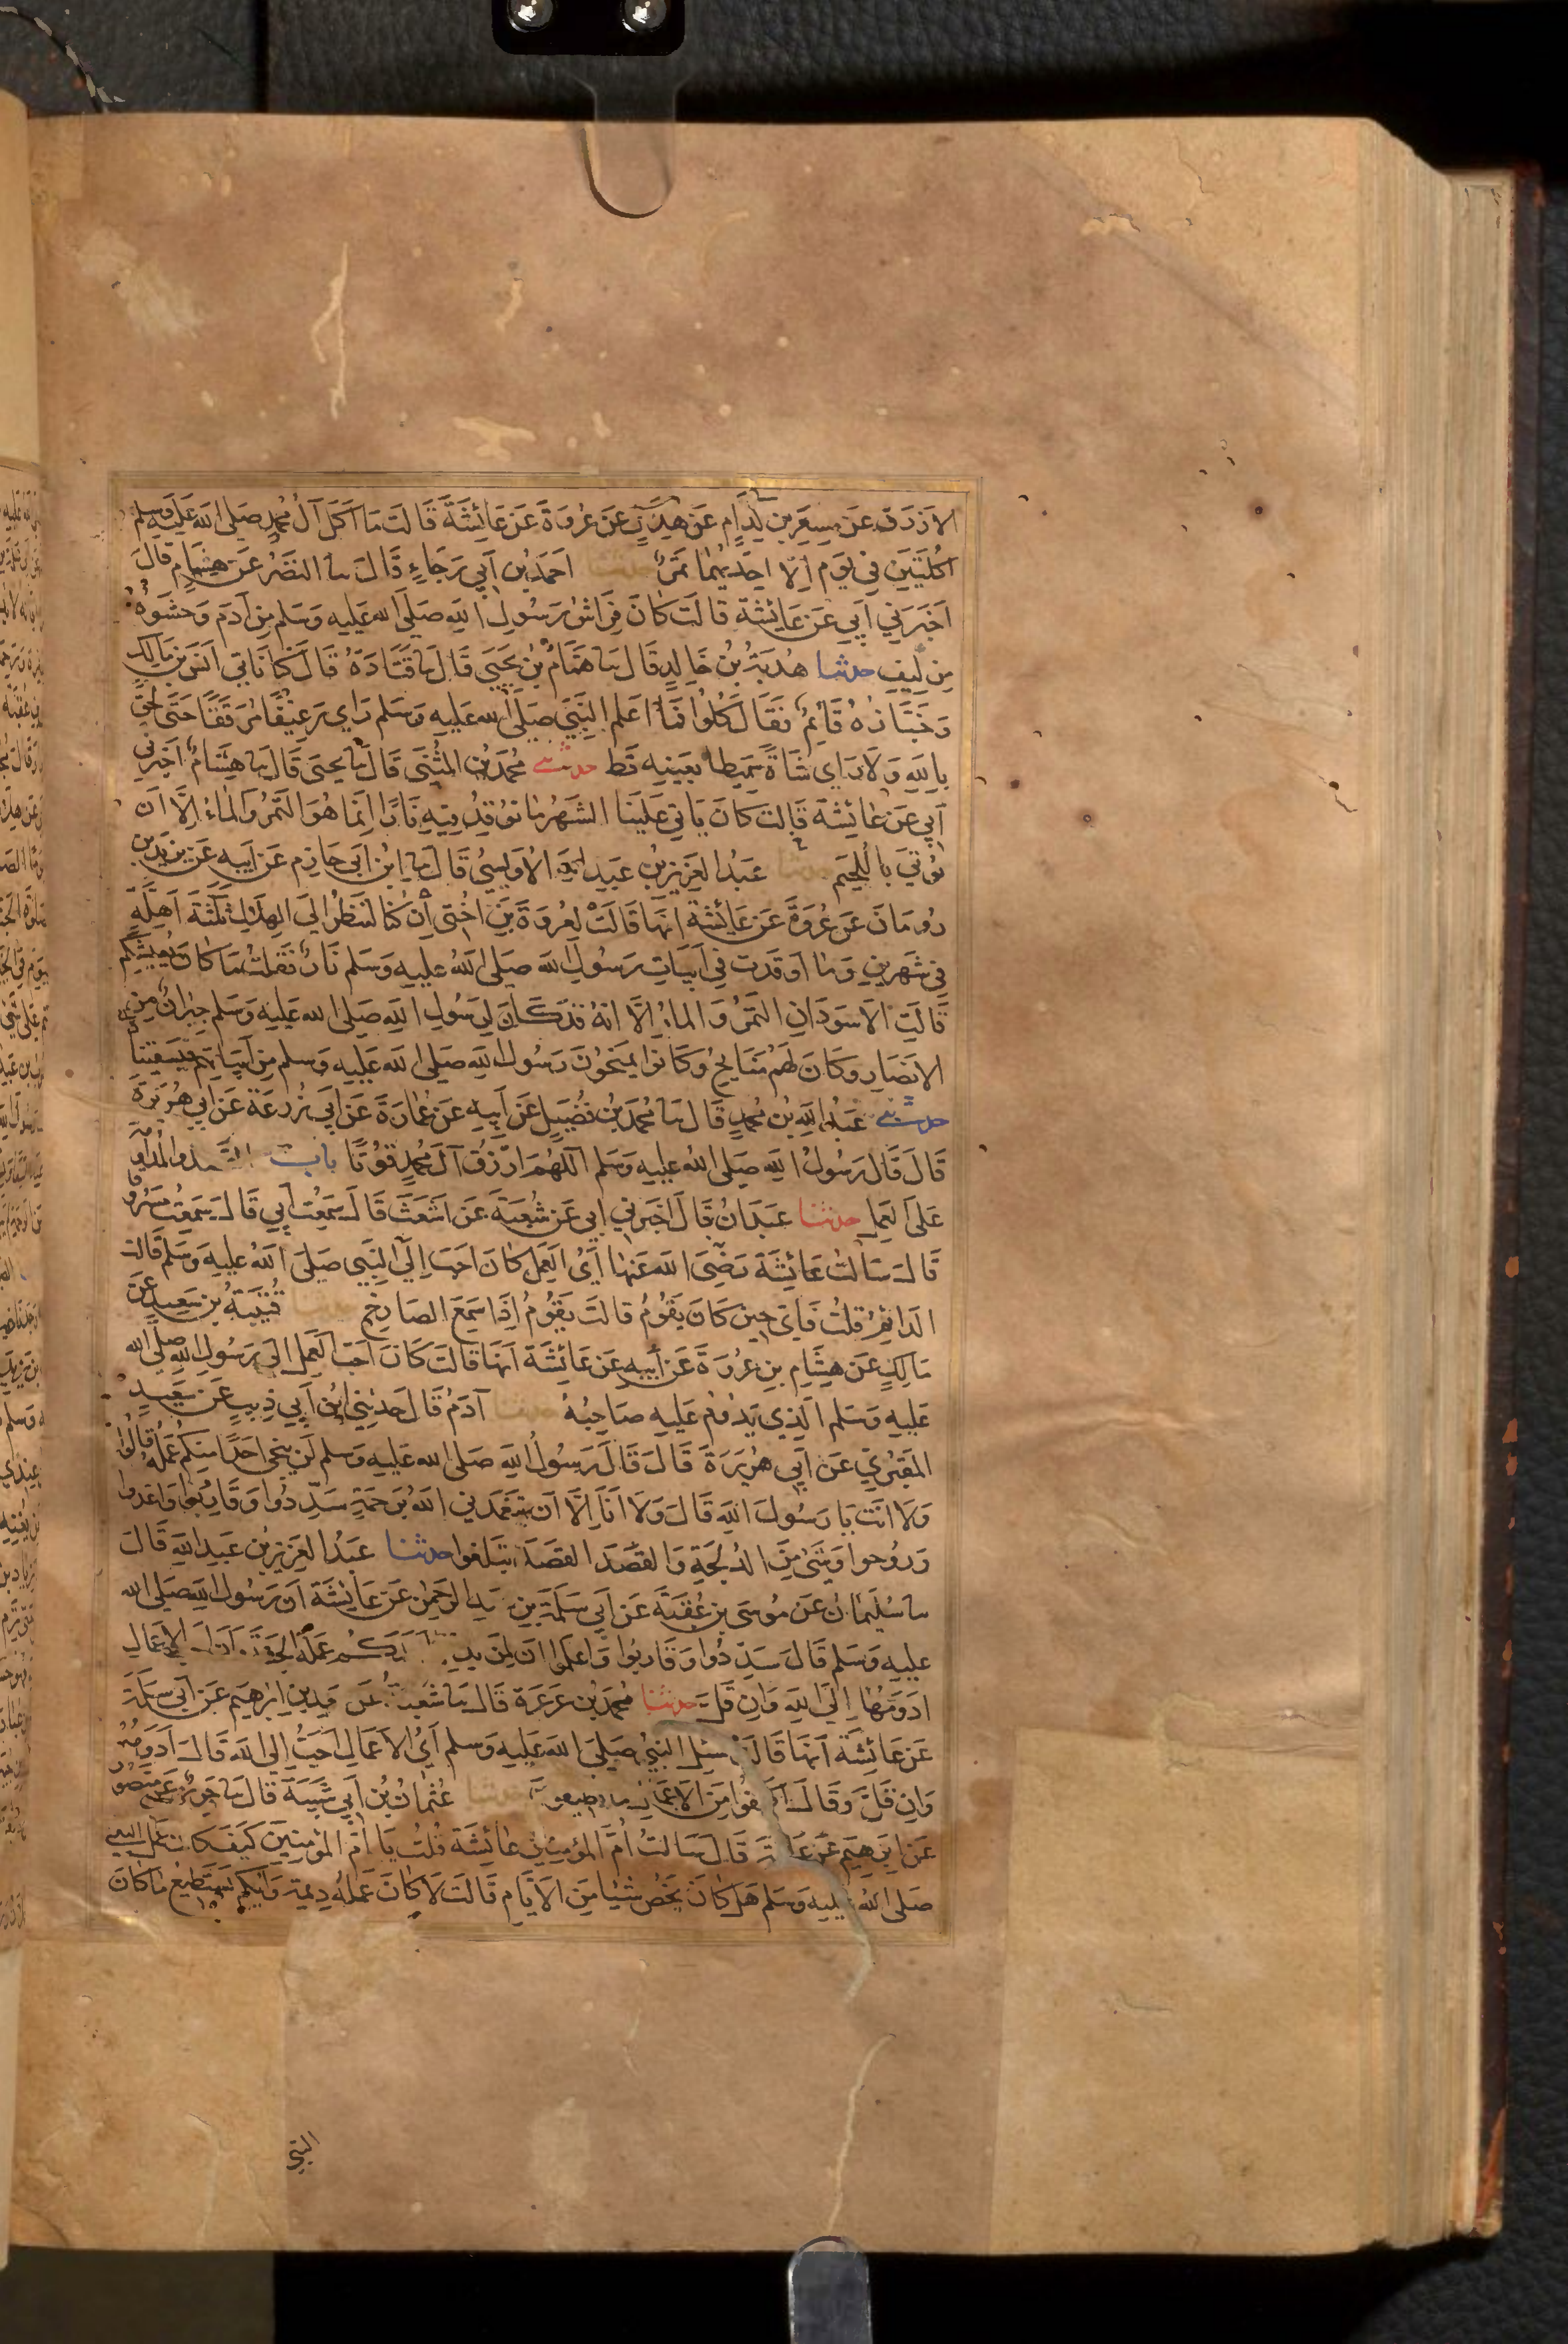 الازرق عن مسعر بن كدام عن هلال عن عروة عن عائشة قالت ما اكل آل محمد صلى الله عليه وسلم
اكلتين في يوم الا احديهما تمر حدثنا احمد بن ابي رجاء قال نا النضر عن هشام قال
اخبرني ابي عن عائشة قالت كان فراش رسول الله صلى الله عليه وسلم من آدم وحشوه
من ليف حدثنا هدبة بن خالد قال نا همام بن يحيى قال نا قتادة قال كنا ناتي انس بن مالك
وخبازه قائم فقال كلوا فما اعلم النبي صلى الله عليه وسلم راي رغيفا مرققا حتى لحق
بالله ولا راي شاة سميطا بعينه قط حدثني محمد بن المثنى قال نا يحيى قال نا هشام اخبرني
ابي عن عائشة قالت كان ياتي علينا الشهر ما نوقد فيه نارا انما هو التمر والماء الا ان
نوتي باللحيم حدثنا عبد العزيز بن عبد الله الاويسي قال نا ابن ابي حازم عن ابيه عن يزيد بن
رومان عن عروة عن عائشة انها قالت لعروة بن اختي ان كنا لننظر الي الهلال ثلثة اهلة
في شهرين وما اوقدت في ابيات رسول الله صلى الله عليه وسلم نار فقلت ما كان يعيشكم
قالت الاسودان التمر والماء الا انه قد كان لرسول الله صلى الله عليه وسلم جيران من
الانصار وكان لهم منايح وكانوا يمنحون رسول الله صلى الله عليه وسلم من ابياتهم فيسقيناه
حدثني عبد الله بن محمد قال نا محمد بن فضيل عن ابيه عن عمارة عن ابي زرعة عن ابي هريرة
قال قال رسول الله صلى الله عليه وسلم اللهم ارزق آل محمد قوتا باب القصد والمداومة
على العمل حدثنا عبدان قال اخبرني ابي عن شعبة عن اشعث قال سمعت ابي قال سمعت مسروقا
قال سالت عائشة رضي الله عنها اي العمل كان احب الي النبي صلى الله عليه وسلم قالت
الدائم قلت فاي حين كان يقوم قالت يقوم اذا سمع الصارخ حدثنا قتيبة بن سعيد عن
مالك عن هشام بن عروة عن ابيه عن عائشة انها قالت كان احب العمل الى رسول الله صلى الله
عليه وسلم الذي يدوم عليه صاحبه حدثنا آدم قال حدثني ابن ابي ذيب عن سعيد
المقبري عن ابي هريرة قال قال رسول الله صلى الله عليه وسلم لن ينجي احدا منكم عمله قالوا
ولا انت يا رسول الله قال ولا انا الا ان يتغمدني الله برحمة سددوا وقاربوا واغدوا
وروحوا وشئ من الدلجة والقصد القصد تبلغوا حدثنا عبد العزيز بن عبد الله قال
نا سليمان عن موسى بن عقبة عن ابي سلمة بن عبد الرحمن عن عائشة ان رسول الله صلى الله
عليه وسلم قال سددوا وقاربوا واعلموا ان لن يدخل احدكم عمله الجنة وان احب الاعمال
ادومها الى الله وان قل حدثنا محمد بن عرعرة قال نا شعبة عن سعد بن ابرهيم عن ابي سلمة
عن عائشة انها قالت سئل النبي صلى الله عليه وسلم اي الاعمال احب الي الله قال ادومه
وان قل وقال اكلفوا من الاعمال ما تطيقون حدثنا عثمان بن ابي شيبة قال نا جرير عن منصور
عن ابرهيم عن علقمة قال سالت ام المؤمنين عائشة قلت يا ام المؤمنين كيف كان عمل النبي
صلى الله عليه وسلم هل كان يخص شيئا من الايام قالت لا كان عمله ديمة وايكم يستطيع ما كان
النبي